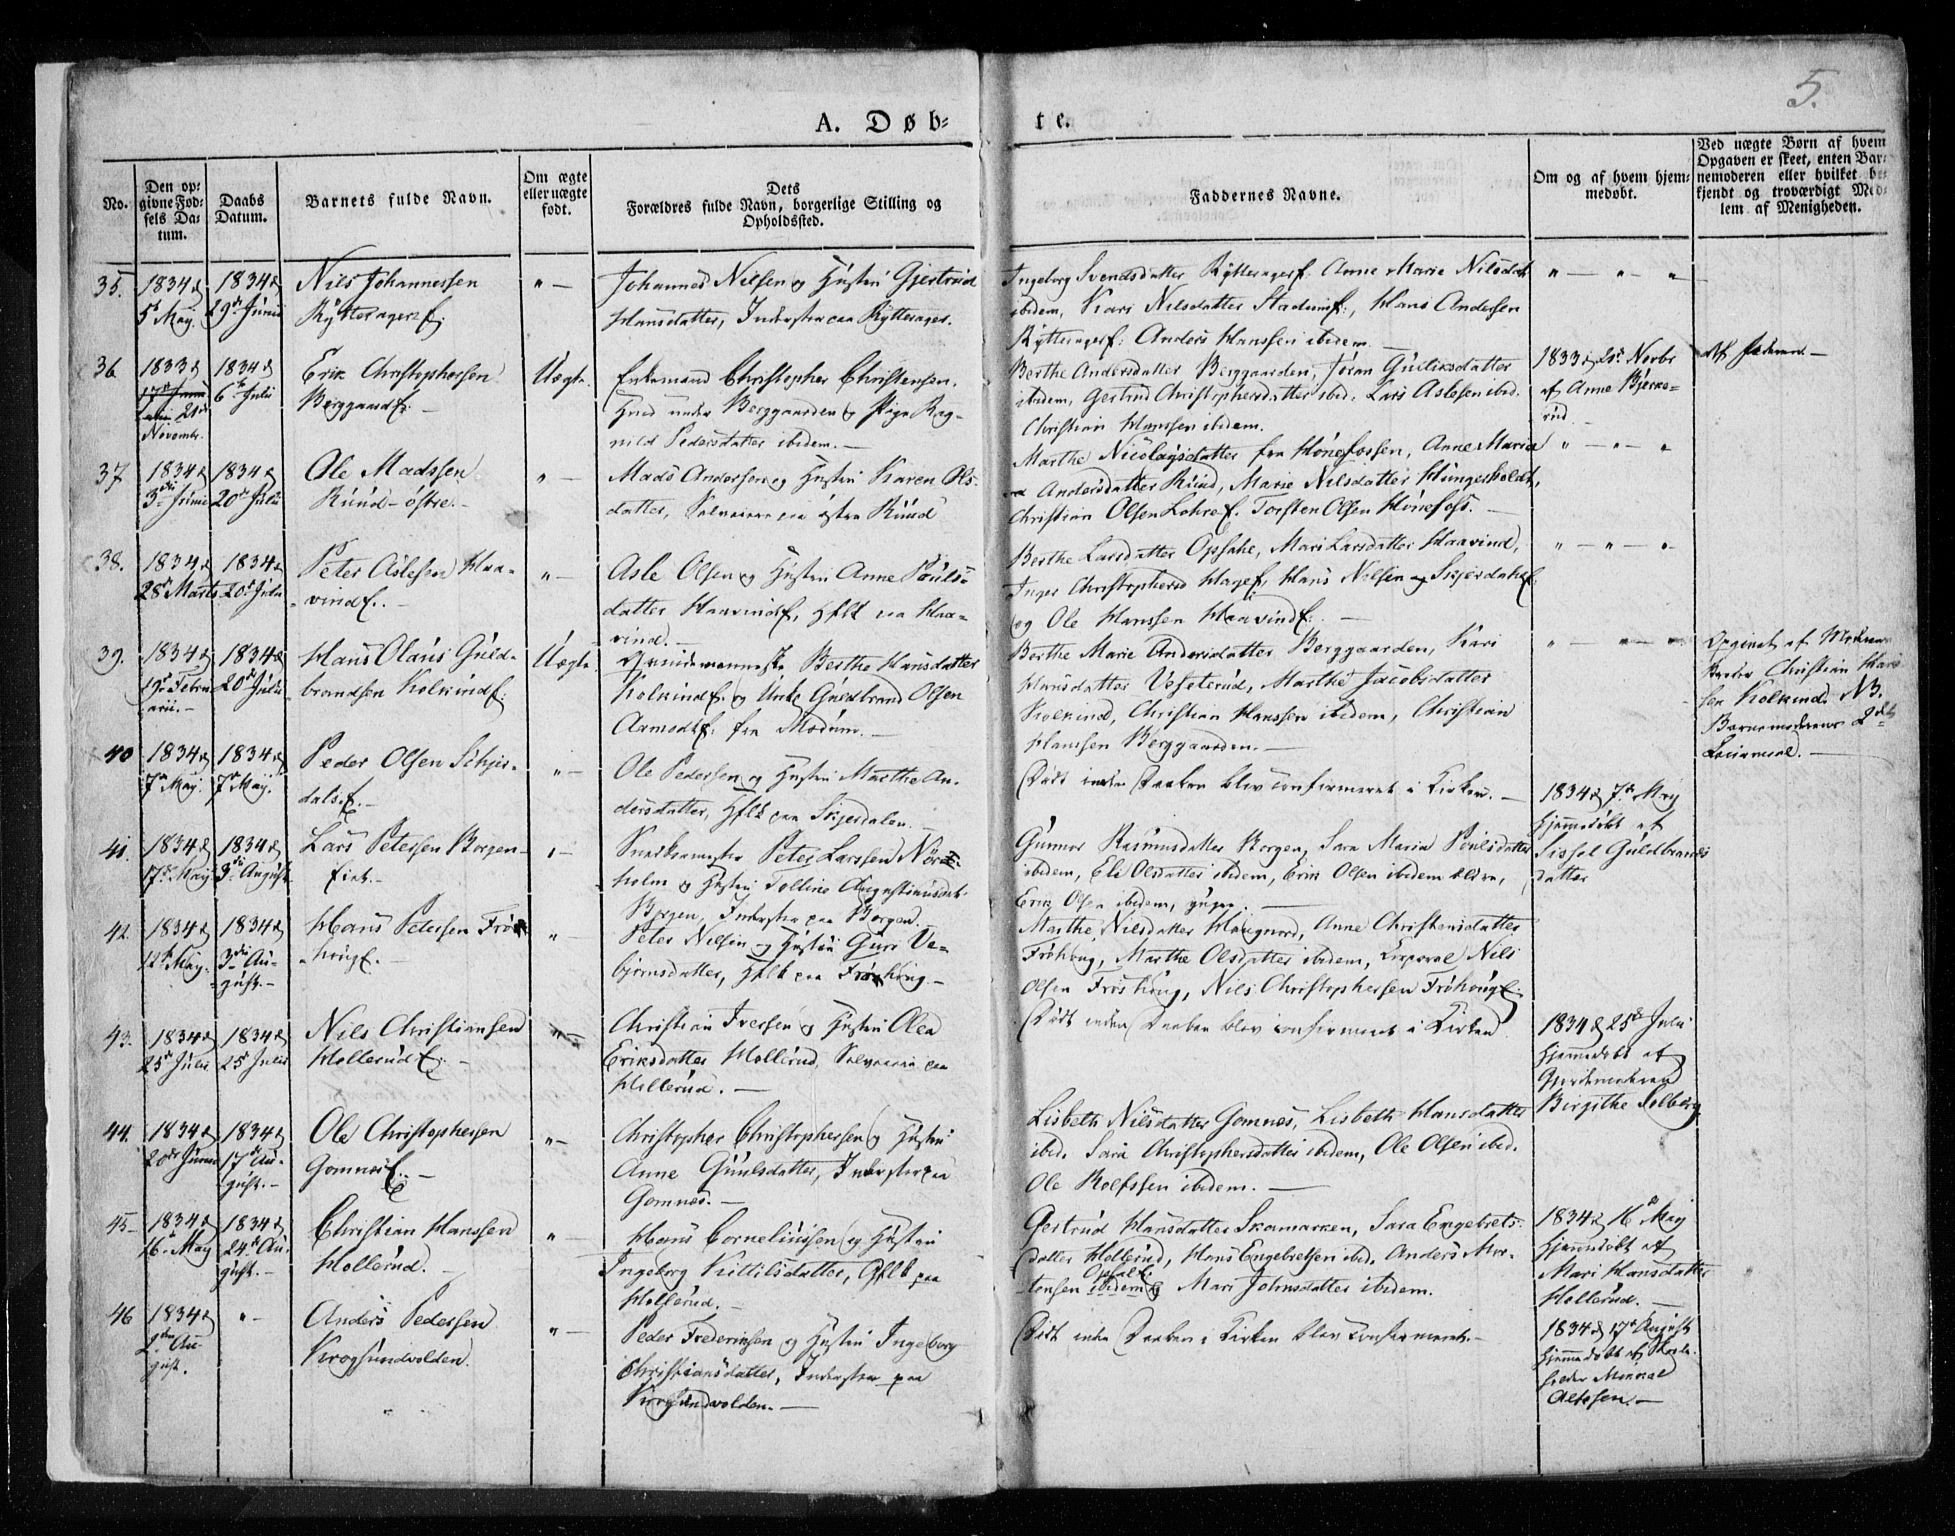 5.
A. Døb-
te.
No.
Den op-
givne Fød-
sels Da-
tum.
Daabs
Datum.
Barnets fulde Navn.
Om ægte
eller uægte
født.
Dets
Forældres fulde Navn, borgerlige Stilling og
Opholdssted.
Faddernes Navne.
Om og af hvem hjem-
medøbt.
Ved uægte Børn af hvem
Opgaven er skeet, enten Bar-
nemoderen eller hvilket be-
kjendt og troværdigt Med-
lem af Menigheden.
35.
1834 d
5t May.
1834 d
29de Junii
Nils Johannessen
Rytterager f.
" —
Johannes Nilsen og Hustru Gjertrud
Hansdatter, Inderster paa Rytterager.
Ingeborg Svendsdatter Rytterager f. Anne Marie Nilsdat
ibidem, Kari Nilsdatter Stadum f., Hans Andersen
Rytterager f: Anders Hanssen ibidem. —
" — " — "
36.
1833 d
21de
Novembr.
1834 d
6te Julii
Erik Christophersen
Berggaard f. —
Uægte
Enkemand Christopher Christensen,
Huus under Berggaarden og Pige Rag-
nild Pedersdatter ibidem. —
Berthe Andersdatter Berggaarden, Jøran Guliksdatter
ibidem, Gertrud Christophersdatter ibid. Lars Aslesen ibid.
Christian Hanssen ibidem.
1833 d 21de Novbr
af Anne Bjerke-
rud
Af Faderen. —
37
1834 d
3die Junii
1834 d
20de Julii
Ole Madssen
Ruud-østre. —
" —
Mads Andersen og Hustru Karen Ols-
datter, Selveiere paa østre Ruud
Marthe Nicolaysdatter fra Hønefossen, Anne Maria
Andersdatter Ruud, Marie Nilsdatter Hungerholdt,
Christian Olsen Lohre f. Torsten Olsen Hønefoss. —
" — " — "
38.
1834 d
28de Marts
1834 d
20de Julii
Peter Aslesen Haa-
vind f. —
" —
Asle Olsen og Hustru Anne Pouls-
datter Haavind f, Hflk paa Haa-
vind. —
Berthe Larsdatter Opsahl, Mari Larsdatter Haavind,
Inger Christophersd Hage f, Hans Nilsen Skjerdahl f.
og Ole Hanssen Haavind f. —
" — " — "
39.
1834 d
19de Febru-
arii. —
1834 d
20de Julii
Hans Olaus Guld-
brandsen Kolkind f.
Uægte
Berthe Hansdatter
Kolkind f. og Unk. Guldbrand Olsen
Aamodt f. fra Modum. —
Berthe Marie Andersdatter Berggaarden, Kari
Hansdatter Veseterud, Marthe Jacobsdatter
Kolkind, Christian Hanssen ibidem, Christian
Hanssen Berggaarden. —
" — " — "
Opgivet af Moderens
Broder Christian Hans-
sen Kolkind. NB.
Barnemoderens 2det
Leiermaal. —
40
1834 d
7de May.
1834 d
7de May.
Peder Olsen Schjer-
dals f. —
" —
Ole Pedersen og Hustru Marthe An-
dersdatter, Hflk paa Skjerdalen. —
Død inden Daaben blev confirmeret i Kirken. —
1834 d 7de May
hjemmedøbt af
Sissel Guldbrands
datter
41.
1834 d
17de May
1834 d
3die August
Lars Petersen Borgen-
eiet. —
" —
Snedkermester Peter Larssen Nord-
holm og Hustru Tolline Augustinusdatt
Borgen, Inderster paa Borgen.
Gunnor Rasmusdatter Borgen, Sara Maria Poulsdatter
ibidem, Eli Olsdatter ibidem, Erik Olsen ibidem eldre,
Erik Olsen ibidem, yngre. —
42.
1834 d
12te May.
1834 d
3die Au-
gust. —
Hans Petersen Frøs-
houg f. —
" —
Peter Nilsen og Hustru Guri Ve-
bjørnsdatter, Hflk paa Frøshoug —
Marthe Nilsdatter Hougnord, Anne Christensdatter
Frøhoug, Marthe Olsdatter ibidem, Corporal Nils
Olsen Frøshoug, Nils Christophersen Frøhoug f.
43.
1834 d
25de Julii
1834 d
25de Julii
Nils Christiansen
Hollerud f. —
" —
Christian Iversen og Hustru Olea
Eriksdatter Hollerud, Selveiere paa
Hollerud. —
Død inden Daaben blev confirmeret i Kirken
1834 d 25de Julii
hjemmedøbt af
Gjordemoderen
Birgithe Solberg
44.
1834 d
20de Junii
1834 d
17de Au-
gust. —
Ole Christophersen
Gomnæs f. —
" —
Christopher Christophersen og Hustru
Anne Guulsdatter, Inderster paa
Gomnæs. —
Lisbeth Nilsdatter Gomnæs, Lisbeth Hansdatter
ibid. Sara Christophersdatter ibidem, Ole Olsen ibid.
Ole Rolfssen ibidem. —
45 —
1834 d
16de May
1834 d
24de Au-
gust. —
Christian Hanssen
Hollerud. —
" —
Hans Corneliussen og Hustru
Ingeborg Kittilsdatter, Hflk paa
Hollerud. —
Gertrud Hansdatter Skamarken, Sara Engebrets-
datter Hollerud, Hans Engebretsen ibid. Anders Mor-
tensen ibidem Opsal f. og Mari Johnsdatter ibidem.
1834 d 16de May
hjemmedøbt af
Mari Hansdatter
Hollerud. —
46
1834 d
2den Au-
gust.
" —
Anders Pedersen
Krogsundvolden.
" —
Peder Frederiksen og Hustru Ingeborg
Christiansdatter, Inderster paa
Krogsundvolden. —
Død inden Daaben i Kirken blev confirmeret. —
1834 d 17de August
hjemmedøbt af Skole-
holder
Aslesen. —